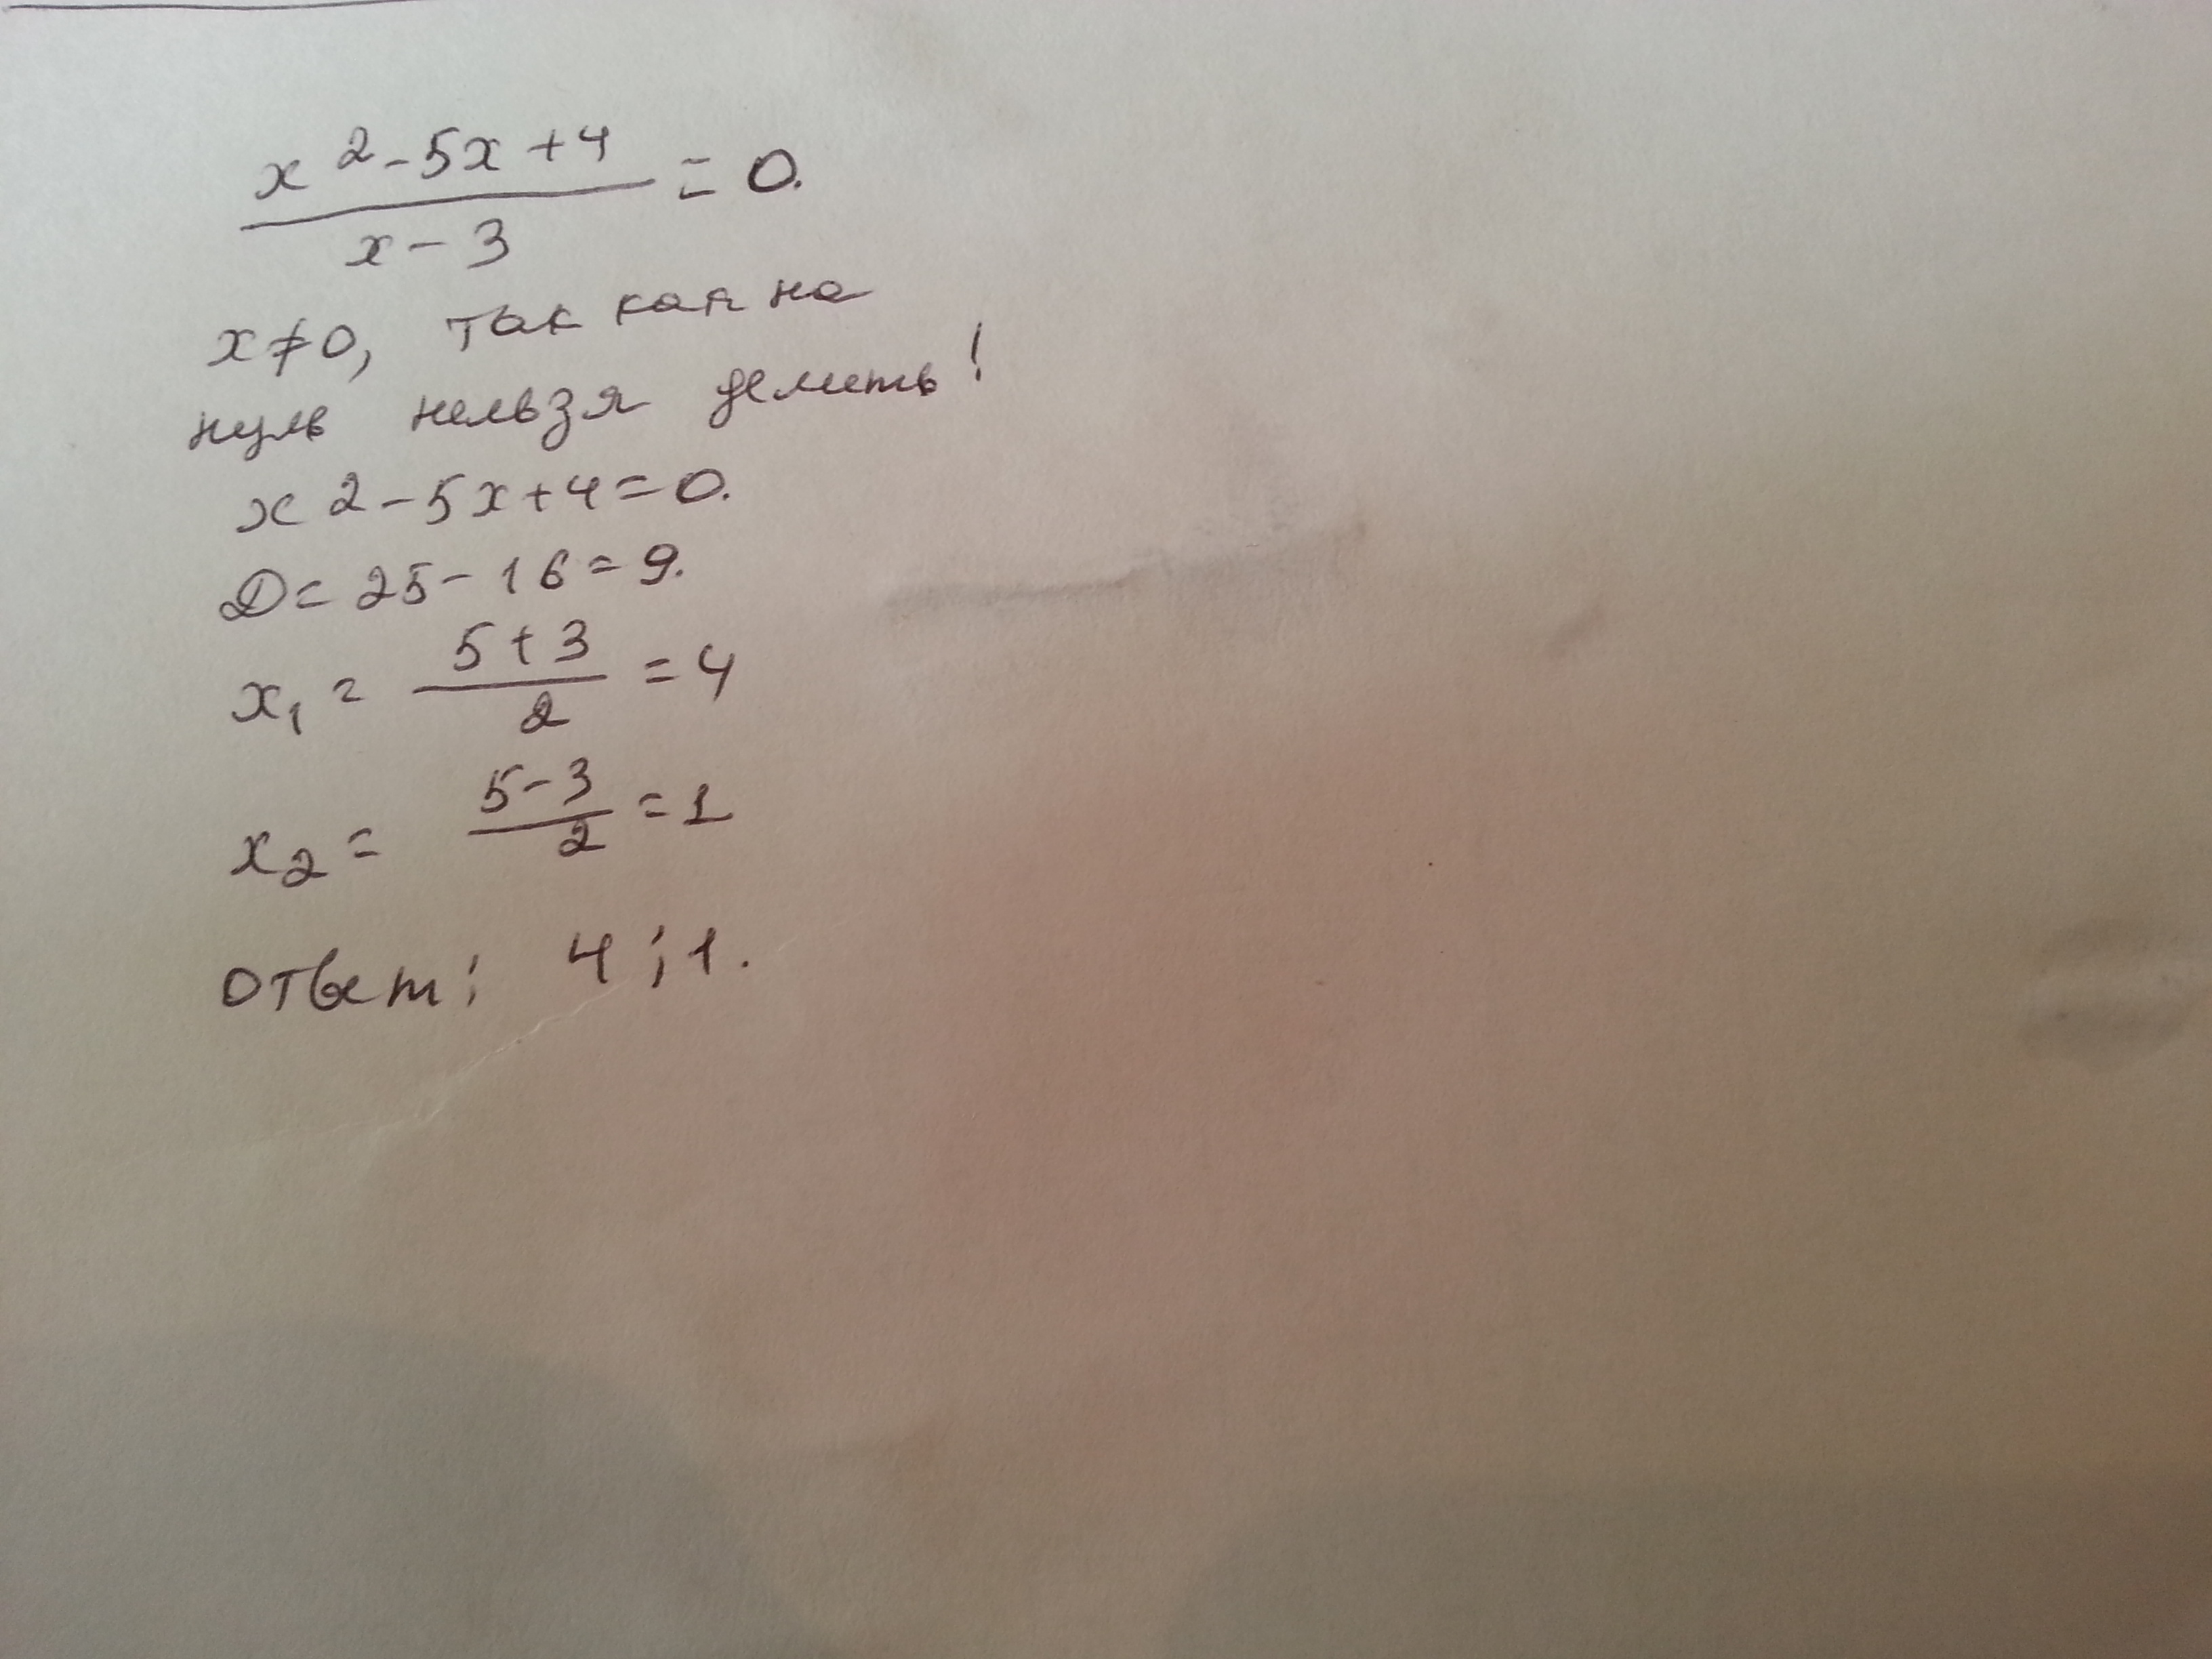 x² - 5x + 4
x - 3
= 0.
x ≠ 0, так как на
нуль нельзя делить!
x 2 - 5x + 4 = 0.
D = 25 - 16 = 9.
x₁ = 5 + 3 / 2 = 4
x₂ = 5 - 3 / 2 = 1
Ответ: 4; 1.